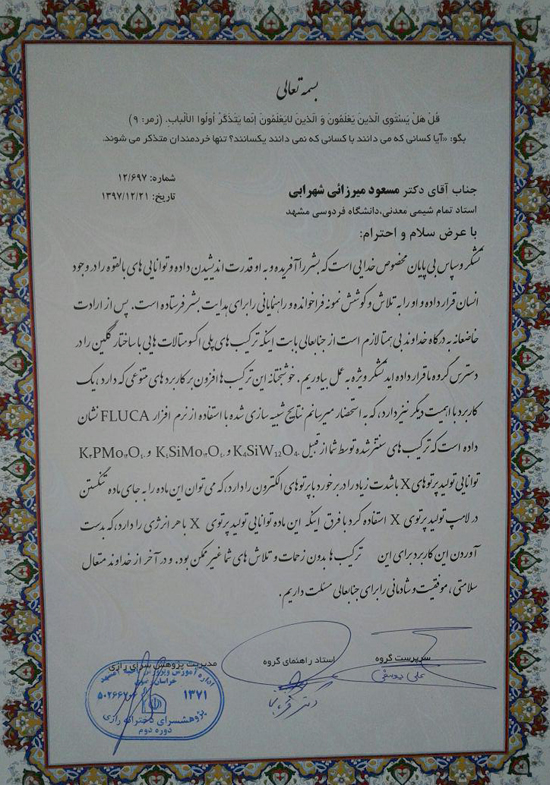 بسمه تعالی
قُل هَل یَستَوِی الَّذینَ یَعلَمونَ وَ الَّذینَ لایَعلَمونَ اِنَّما یَتَذَکَّرُ اُولُوا الاَلباب. (زمر: ۹)
بگو: «آیا کسانی که می دانند با کسانی که نمی دانند یکسانند؟ تنها خردمندان متذکر می شوند.
شماره: ۱۲/۶۹۷
جناب آقای دکتر مسعود میرزائی شهرابی
تاریخ: ۱۳۹۷/۱۲/۲۱
استاد تمام شیمی معدنی،دانشگاه فردوسی مشهد
با عرض سلام و احترام:
تشکر و سپاس بی پایان مخصوص خدایی است که بشر را آفریده و به او قدرت اندیشیدن داده و توانایی های بالقوه را در وجود
انسان قرار داده و او را به تلاش و کوشش نمونه فراخوانده و راهنمایانی را برای هدایت بشر فرستاده است. پس از ارادت
خاضعانه به درگاه خداوند بی همتا لازم است از جنابعالی بابت اینکه ترکیب های پلی اکسومتالات هایی با ساختار کگین را در
دسترس گروه ما قرار داده اید تشکر ویژه به عمل بیاوریم. خوشبختانه این ترکیب ها افزون بر کاربرد های متنوعی که دارد، یک
کاربرد با اهمیت دیگر نیز دارد، که به استحضار میرسانم نتایج شبیه سازی شده با استفاده از نرم افزار FLUCA نشان
داده است که ترکیب های سنتز شده توسط شما از قبیل
توانایی تولید پرتوهای X با شدت زیاد را در برخورد با پرتوهای الکترون را دارد، که می توان این ماده را به جای ماده تنگستن
در لامپ تولید پرتوی X استفاده کرد با فرق اینکه این ماده توانایی تولید پرتوی X با هر انرژی را دارد، که بدست
آوردن این کاربرد برای این ترکیب ها بدون زحمات و تلاش های شما غیر ممکن بود. و در آخر از خداوند متعال
سلامتی، موفقیت و شادمانی را برای جنابعالی مسئلت داریم.
سرپرست گروه
استاد راهنمای گروه
مدیریت پژوهش سرای رازی
خراسان رضوی
۵۰۲۶۶۷۰۶
۱۳۷۱
پژوهشسرای دخترانه رازی
دوره دوم